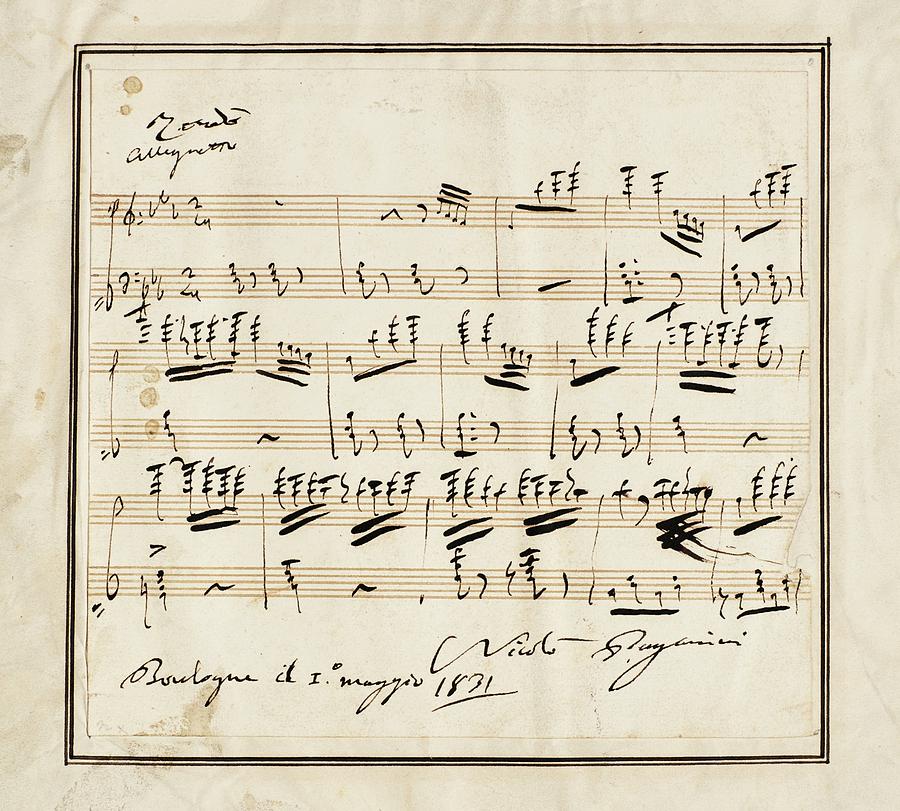 Rondò
Allegretto
2
4
2
4
Nicolò Paganini
Boulogne il 1.º maggio 1831